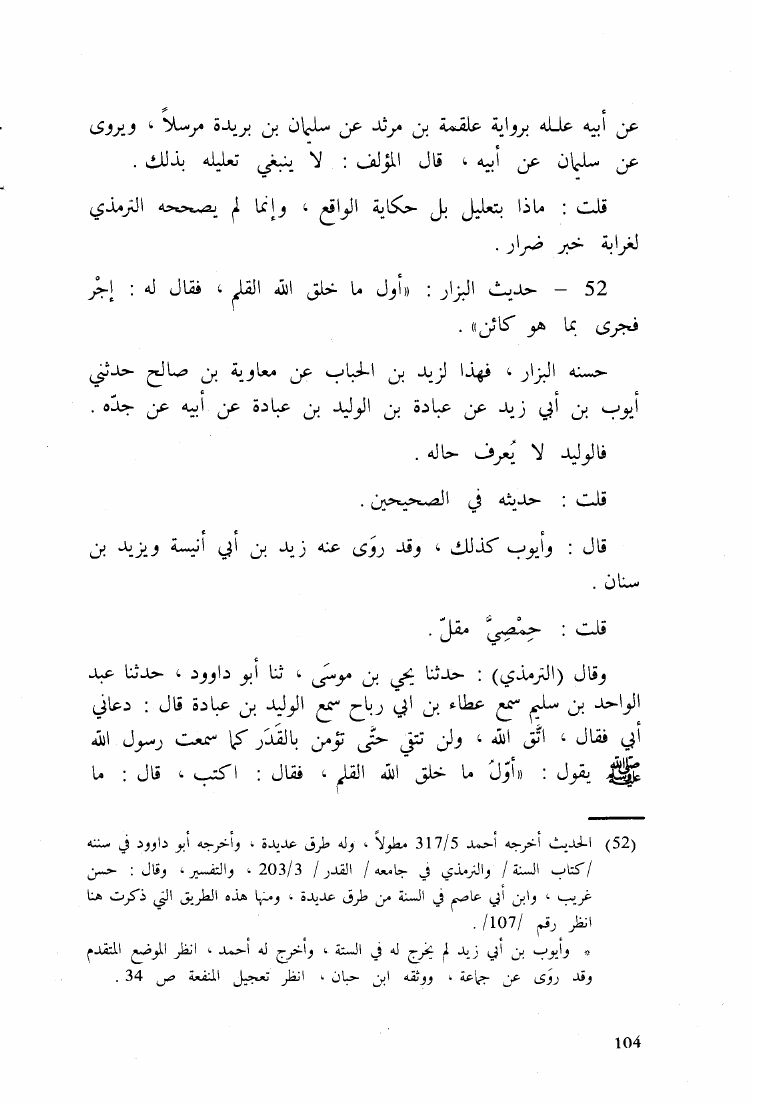 عن أبيه علله برواية علقمة بن مرثد عن سليمان بن بريدة مرسلاً ، ويروى
عن سليمان عن أبيه ، قال المؤلف : لا ينبغي تعليله بذلك .
قلت : ماذا بتعليل بل حكاية الواقع ، وإنما لم يصححه الترمذي
لغرابة خبر ضرار .
52 – حديث البزار : «أول ما خلق الله القلم ، فقال له : إجْر
فجرى بما هو كائن» .
حسنه البزار ، فهذا لزيد بن الحباب عن معاوية بن صالح حدثني
أيوب بن أبي زيد عن عبادة بن الوليد بن عبادة عن أبيه عن جدّه .
فالوليد لا يُعرف حاله .
قلت : حديثه في الصحيحين .
قال : وأيوب كذلك ، وقد روَى عنه زيد بن أبي أنيسة ويزيد بن
سنان .
قلت : حِمْصِيَّ مقلّ .
وقال (الترمذي) : حدثنا يحي بن موسَى ، ثنا أبو داوود ، حدثنا عبد
الواحد بن سليم سمع عطاء بن ابي رباح سمع الوليد بن عبادة قال : دعاني
أبي فقال ، اتَّق الله ، ولن تتقي حتَّى تؤمن بالقَدَر كما سمعت رسول الله
ﷺ يقول : «أوّلُ ما خلق الله القلم ، فقال : اكتب ، قال : ما
(52) الحديث أخرجه أحمد 317/5 مطولاً ، وله طرق عديدة ، وأخرجه أبو داوود في سننه
/كتاب السنة / والترمذي في جامعه / القدر / 203/3 ، والتفسير ، وقال : حسن
غريب ، وابن أبي عاصم في السنة من طرق عديدة ، ومنها هذه الطريق التي ذكرت هنا
انظر رقم /107/ .
* وأيوب بن أبي زيد لم يخرج له في الستة ، وأخرج له أحمد ، انظر الموضع المتقدم
وقد روَى عن جماعة ، ووثقه ابن حبان ، انظر تعجيل المنفعة ص 34 .
104